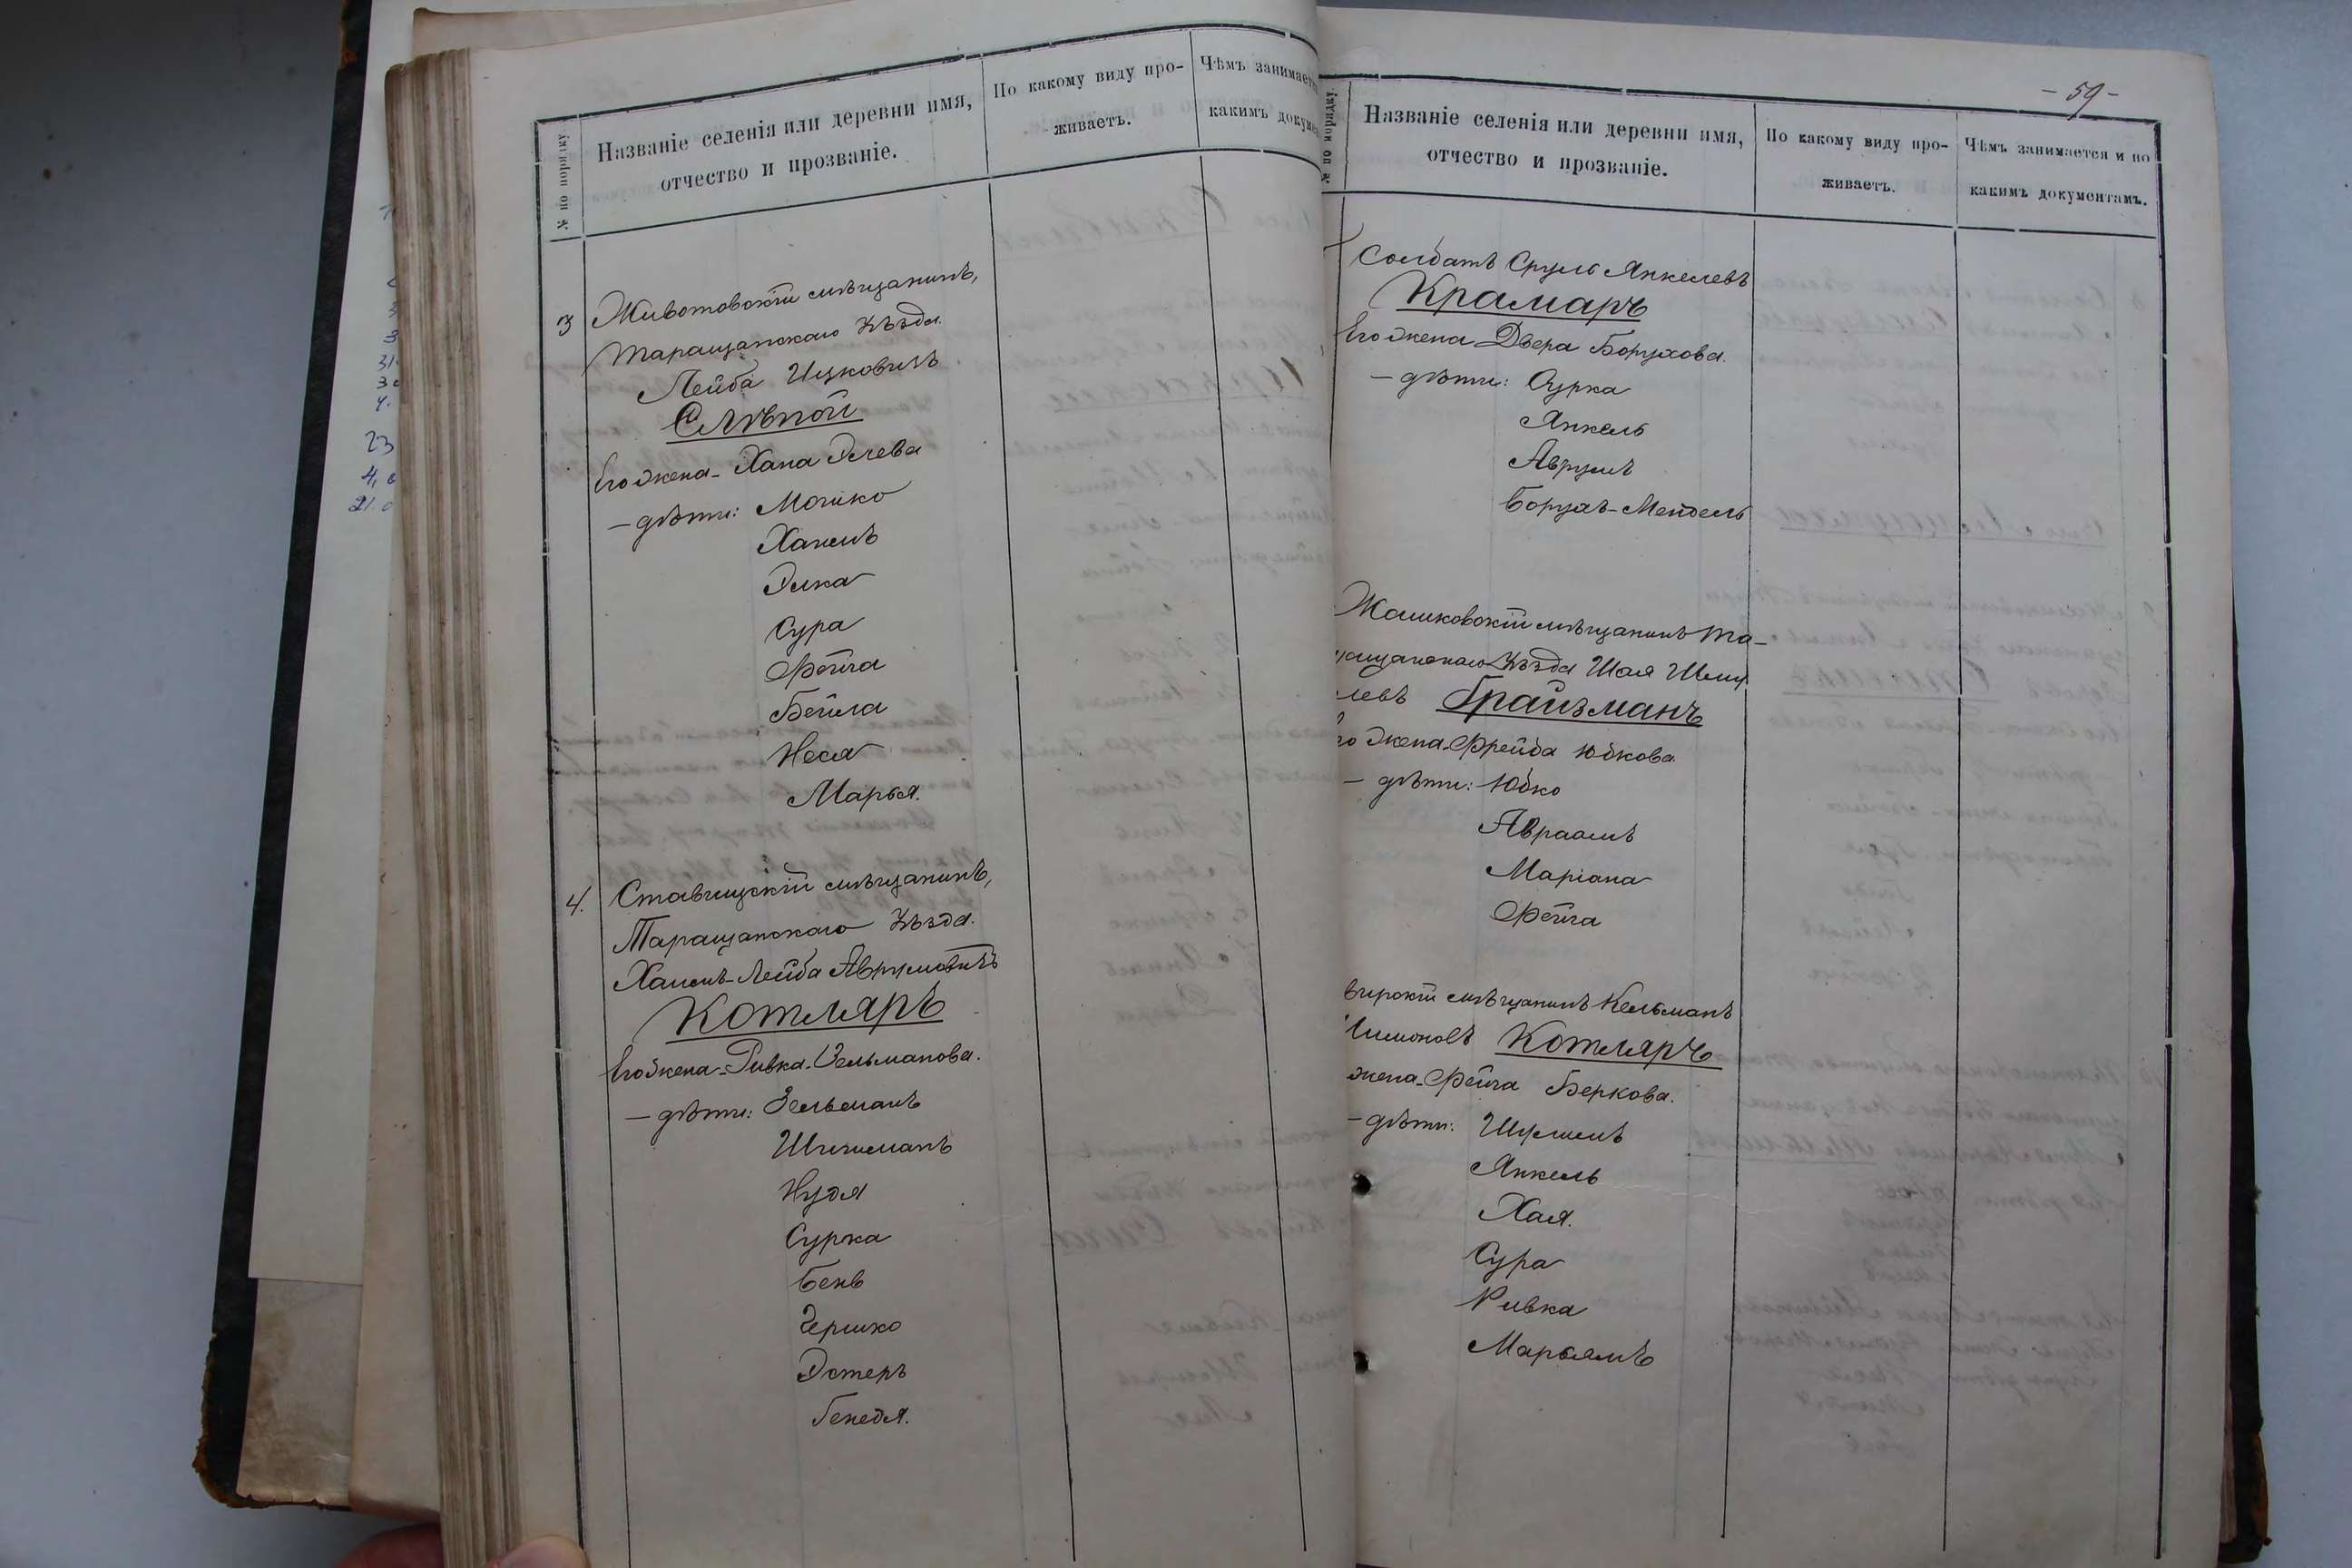 № по порядку.
Названіе селенія или деревни имя,
отчество и прозваніе.
По какому виду про-
живаетъ.
Чѣмъ занимает
какимъ докуме
3 Животовскій мѣщанинъ,
Таращанскаго Уѣзда.
Лейба Ицковичъ
Слѣпой
Его жена - Хана Элева
— дѣти: Мошко
Хаимъ
Элка
Сура
Фейга
Бейла
Неся
Марья.
4. Ставищскій мѣщанинъ,
Таращанскаго Уѣзда.
Хаимъ-Лейба Аврумовичъ
Котляръ
Его жена - Ривка Зельманова.
— дѣти: Зельманъ
Нудя
Сурка
Бенѣ
Гершко
Эстеръ
Генедя.
- 59 -
№ по порядку
Названіе селенія или деревни имя,
отчество и прозваніе.
По какому виду про-
живаетъ.
Чѣмъ занимается и по
какимъ документамъ.
Солдатъ Сруль Янкелевъ
Крамаръ
Его жена Двера Борухова.
— дѣти: Сурка
Янкель
Аврумъ
Борухъ-Мендель
Жашковскій мѣщанинъ Та-
ращанскаго Уѣзда Шая Шму
левъ Грайзманъ
го жена - Фрейда Юдкова
— дѣти: Юдко
Авраамъ
Маріана
Фейга
мѣщанинъ Кельманъ
Шимоновъ Котляръ
жена - Фейга Беркова.
— дѣти: Шулимъ
Янкель
Хая.
Сура
Ривка
Марьямъ